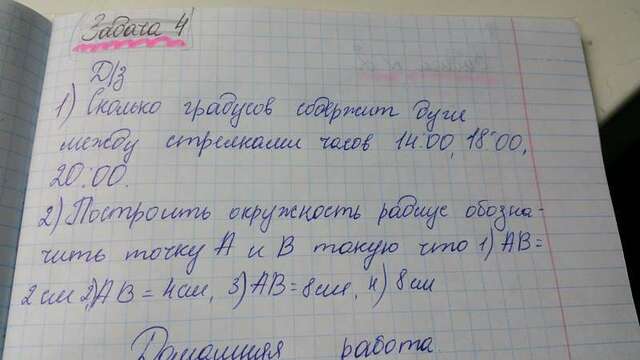 Задача 4
Д/з
1) Сколько градусов содержит дуги
между стрелками часов 14:00, 18:00,
20:00.
2) Построить окружность радиус обозна-
чить точку А и В такую что 1) АВ=
2 см 2) АВ = 4 см, 3) АВ = 8 см, 4) 8 см
Домашняя работа.